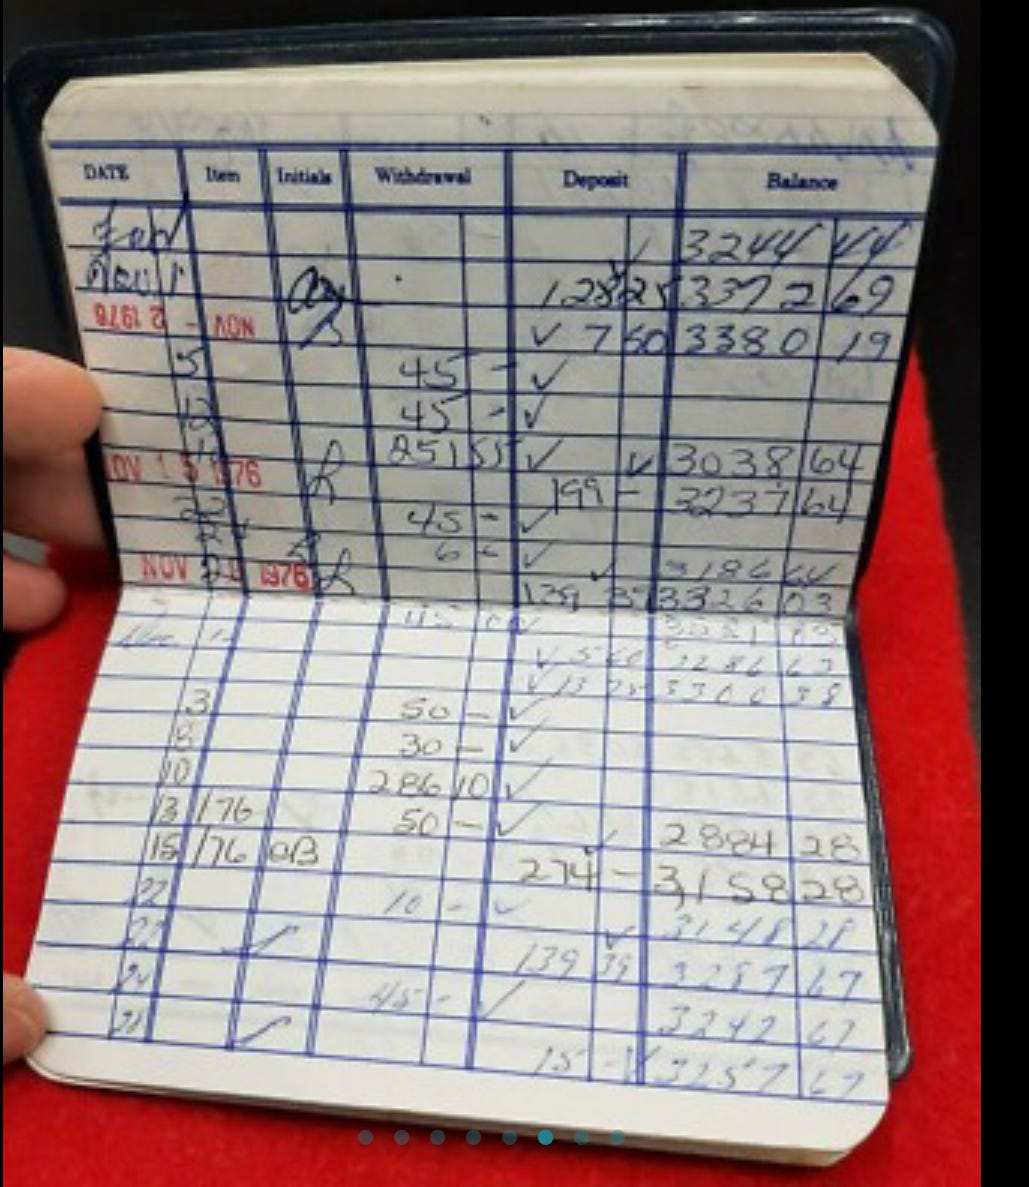 DATE Item Initials Withdrawal Deposit Balance
3244 44
Nov 1 128 25 3372 69
NOV - 2 1976 7 50 3380 19
5 45 - ✓
12 45 - ✓
251 55 ✓ ✓ 3038 64
NOV 1 5 1976 199 - 3237 64
22 45 - ✓
24 6 - ✓ 3186 64
NOV 1976 139 39 3326 03
45 00 ✓ 03
✓ 5 60 3286 63
✓ 13 75 3300 38
3 50 - ✓
8 30 - ✓
10 286 10 ✓
13 /76 50 - ✓ 2884 28
15 /76 274 - 3,158 28
22 10 - ✓ 3148 28
139 39 3287 67
24 45 - ✓ 3242 67
15 - ✓ 3257 67